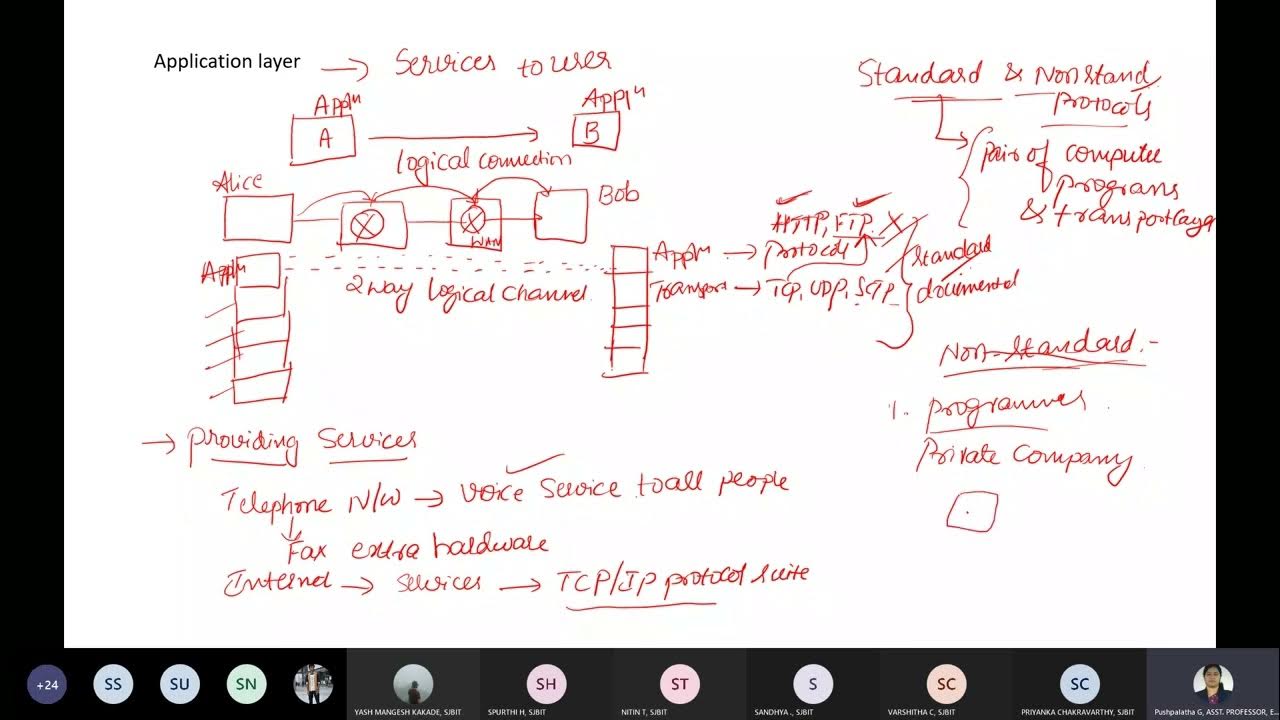 Application layer → Services to user
Appln
A
Appln
B
logical connection
Alice
Bob
WAN
Appln
2 way logical channel
Appln → protocols
HTTP, FTP, X
Transport → TCP, UDP, SCTP
Standard
documented
Standard & Non Stand
protocols
pair of computer
programs
& transport layer
Non-Standard :-
1. programmes
Private company
→ Providing Services
Telephone N/W → voice service to all people
Fax extra hardware
Internet → services → TCP/IP protocol suite
+24
SS
SU
SN
YASH MANGESH KAKADE, SJBIT
SH
SPURTHI H, SJBIT
ST
NITIN T, SJBIT
S
SANDHYA ., SJBIT
SC
VARSHITHA C, SJBIT
SC
PRIYANKA CHAKRAVARTHY, SJBIT
Pushpalatha G, ASST. PROFESSOR, E...